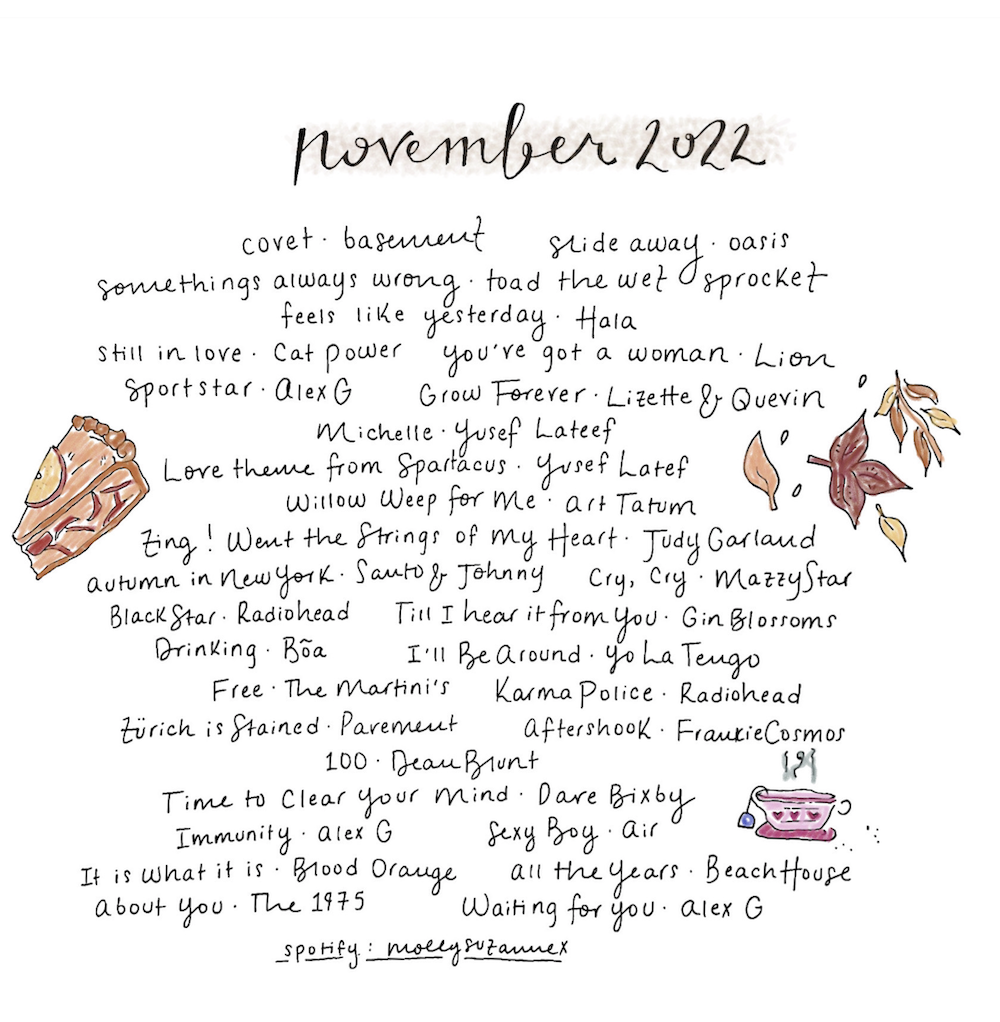 november 2022
covet · basement slide away · oasis
somethings always wrong · toad the wet sprocket
feels like yesterday · Hala
still in love · Cat power you've got a woman · Lion
Sportstar · Alex G Grow Forever · Lizette & Quevin
Michelle · Yusef Lateef
Love theme from Spartacus · Yusef Latef
Willow Weep for Me · Art Tatum
Zing! Went the Strings of my Heart · Judy Garland
autumn in New York · Santo & Johnny Cry, Cry · Mazzy Star
Black Star · Radiohead Till I hear it from you · Gin Blossoms
Drinking · Bõa I'll Be Around · Yo La Tengo
Free · The Martini's Karma Police · Radiohead
Zürich is Stained · Pavement Aftershook · Frankie Cosmos
100 · Dean Blunt
Time to Clear your Mind · Dave Bixby
Immunity · Alex G Sexy Boy · Air
It is what it is · Blood Orange All the Years · Beach House
About You · The 1975 Waiting for you · Alex G
spotify: mollysuzannex